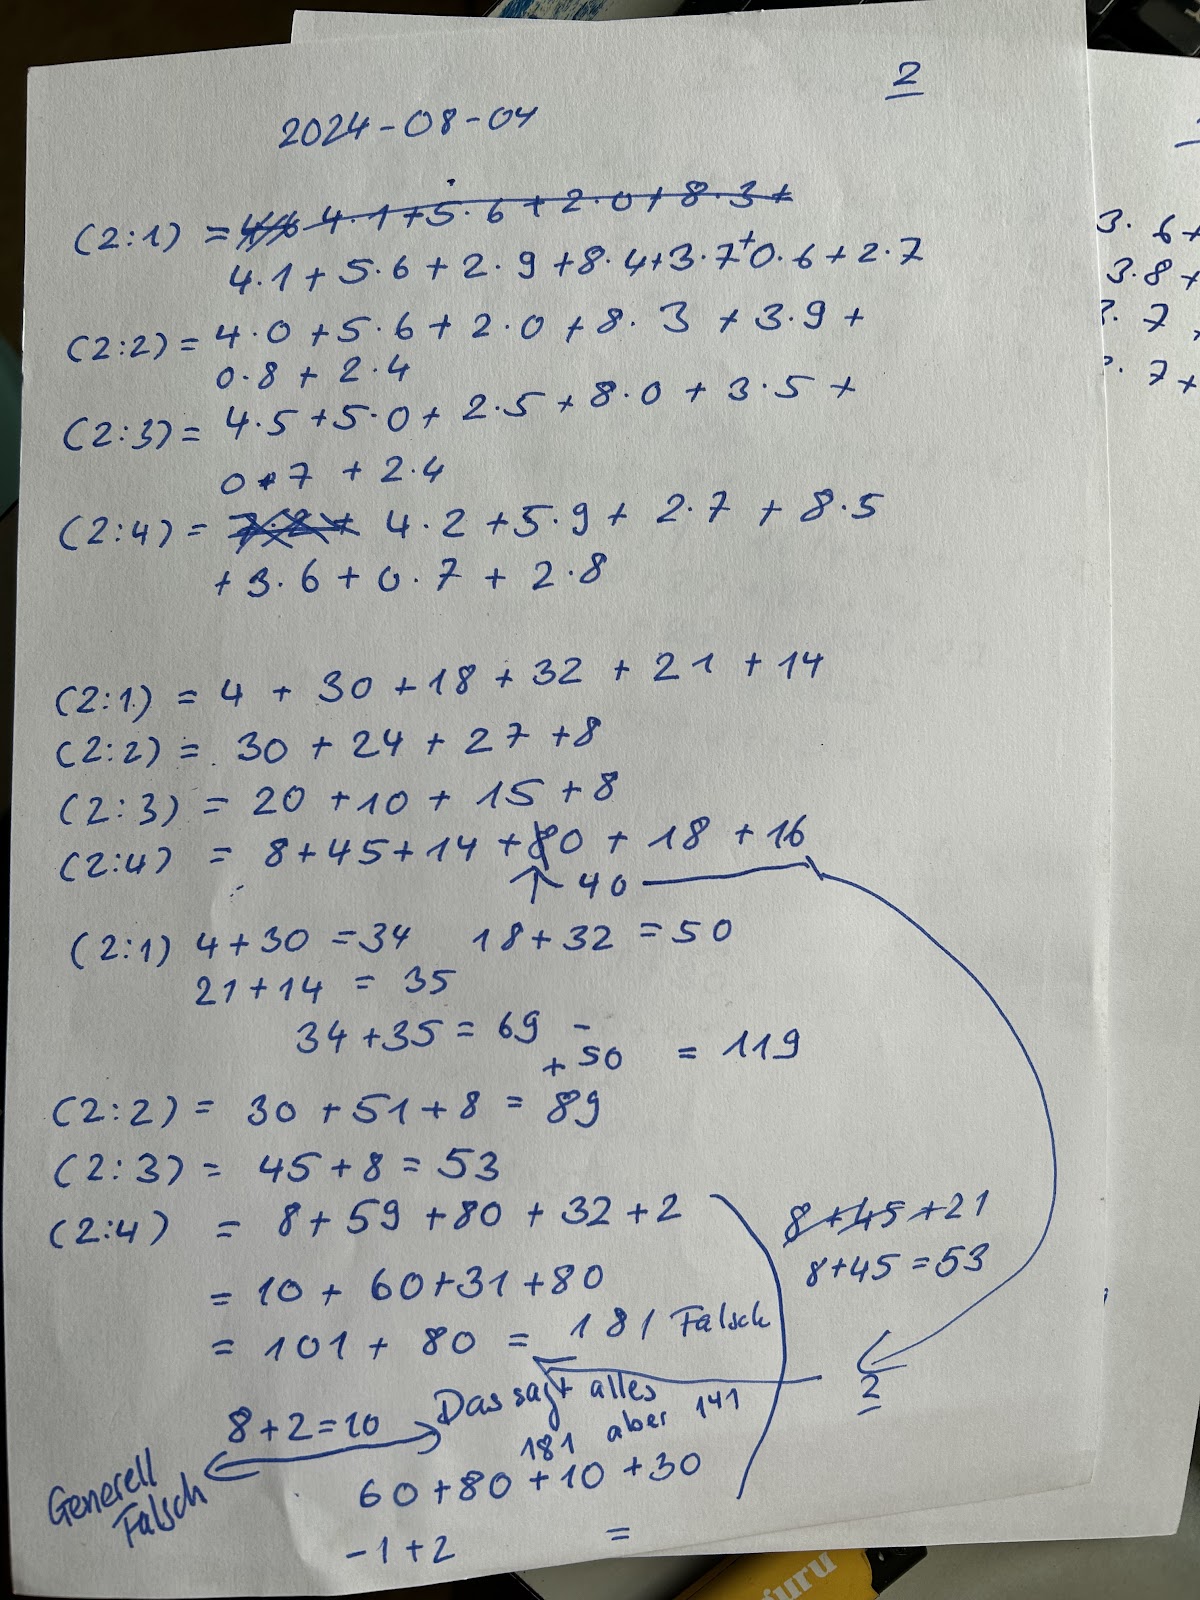 2
2024-08-04
(2:1) = 4·1+5·6+2·0+8·3+
4·1+5·6+2·9+8·4+3·7+0·6+2·7
(2:2) = 4·0+5·6+2·0+8·3+3·9+
0·8+2·4
(2:3) = 4·5+5·0+2·5+8·0+3·5+
0·7+2·4
(2:4) = 7·2+ 4·2+5·9+2·7+8·5
+3·6+0·7+2·8
(2:1) = 4+30+18+32+21+14
(2:2) = 30+24+27+8
(2:3) = 20+10+15+8
(2:4) = 8+45+14+80+18+16
↑ 40
(2:1) 4+30=34 18+32=50
21+14 = 35
34+35=69 -
+50 = 119
(2:2) = 30+51+8=89
(2:3) = 45+8=53
(2:4) = 8+59+80+32+2
8+45+21
8+45=53
= 10+60+31+80
= 101+80 = 181 Falsch
2
Das sagt alles
181 aber 141
8+2=10
Generell
Falsch
60+80+10+30
-1+2 =
3·6+
3·8+
3·7+
7+
furu